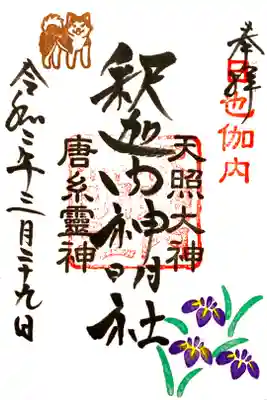 奉拝
日也伽内
天照大神
釈迦内神明社
唐糸靈神
令和三年三月二十九日